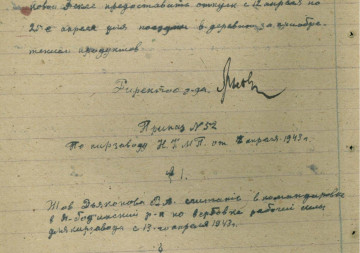 предоставить отпуск с 12 апреля по
25-е апреля для поездки в деревню за приобре-
тением продуктов
Директор з-да
Приказ № 52
По кирзаводу Н.Т.М.П. от апреля 1943 г.
§ 1.
Тов Дьяконова считать в командировке
в р-н по вербовке рабочей силы
для кирзавода с 13-го апреля 1943 г.
§